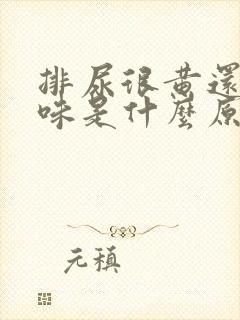 排尿很黄還
味是什麼原
元稹